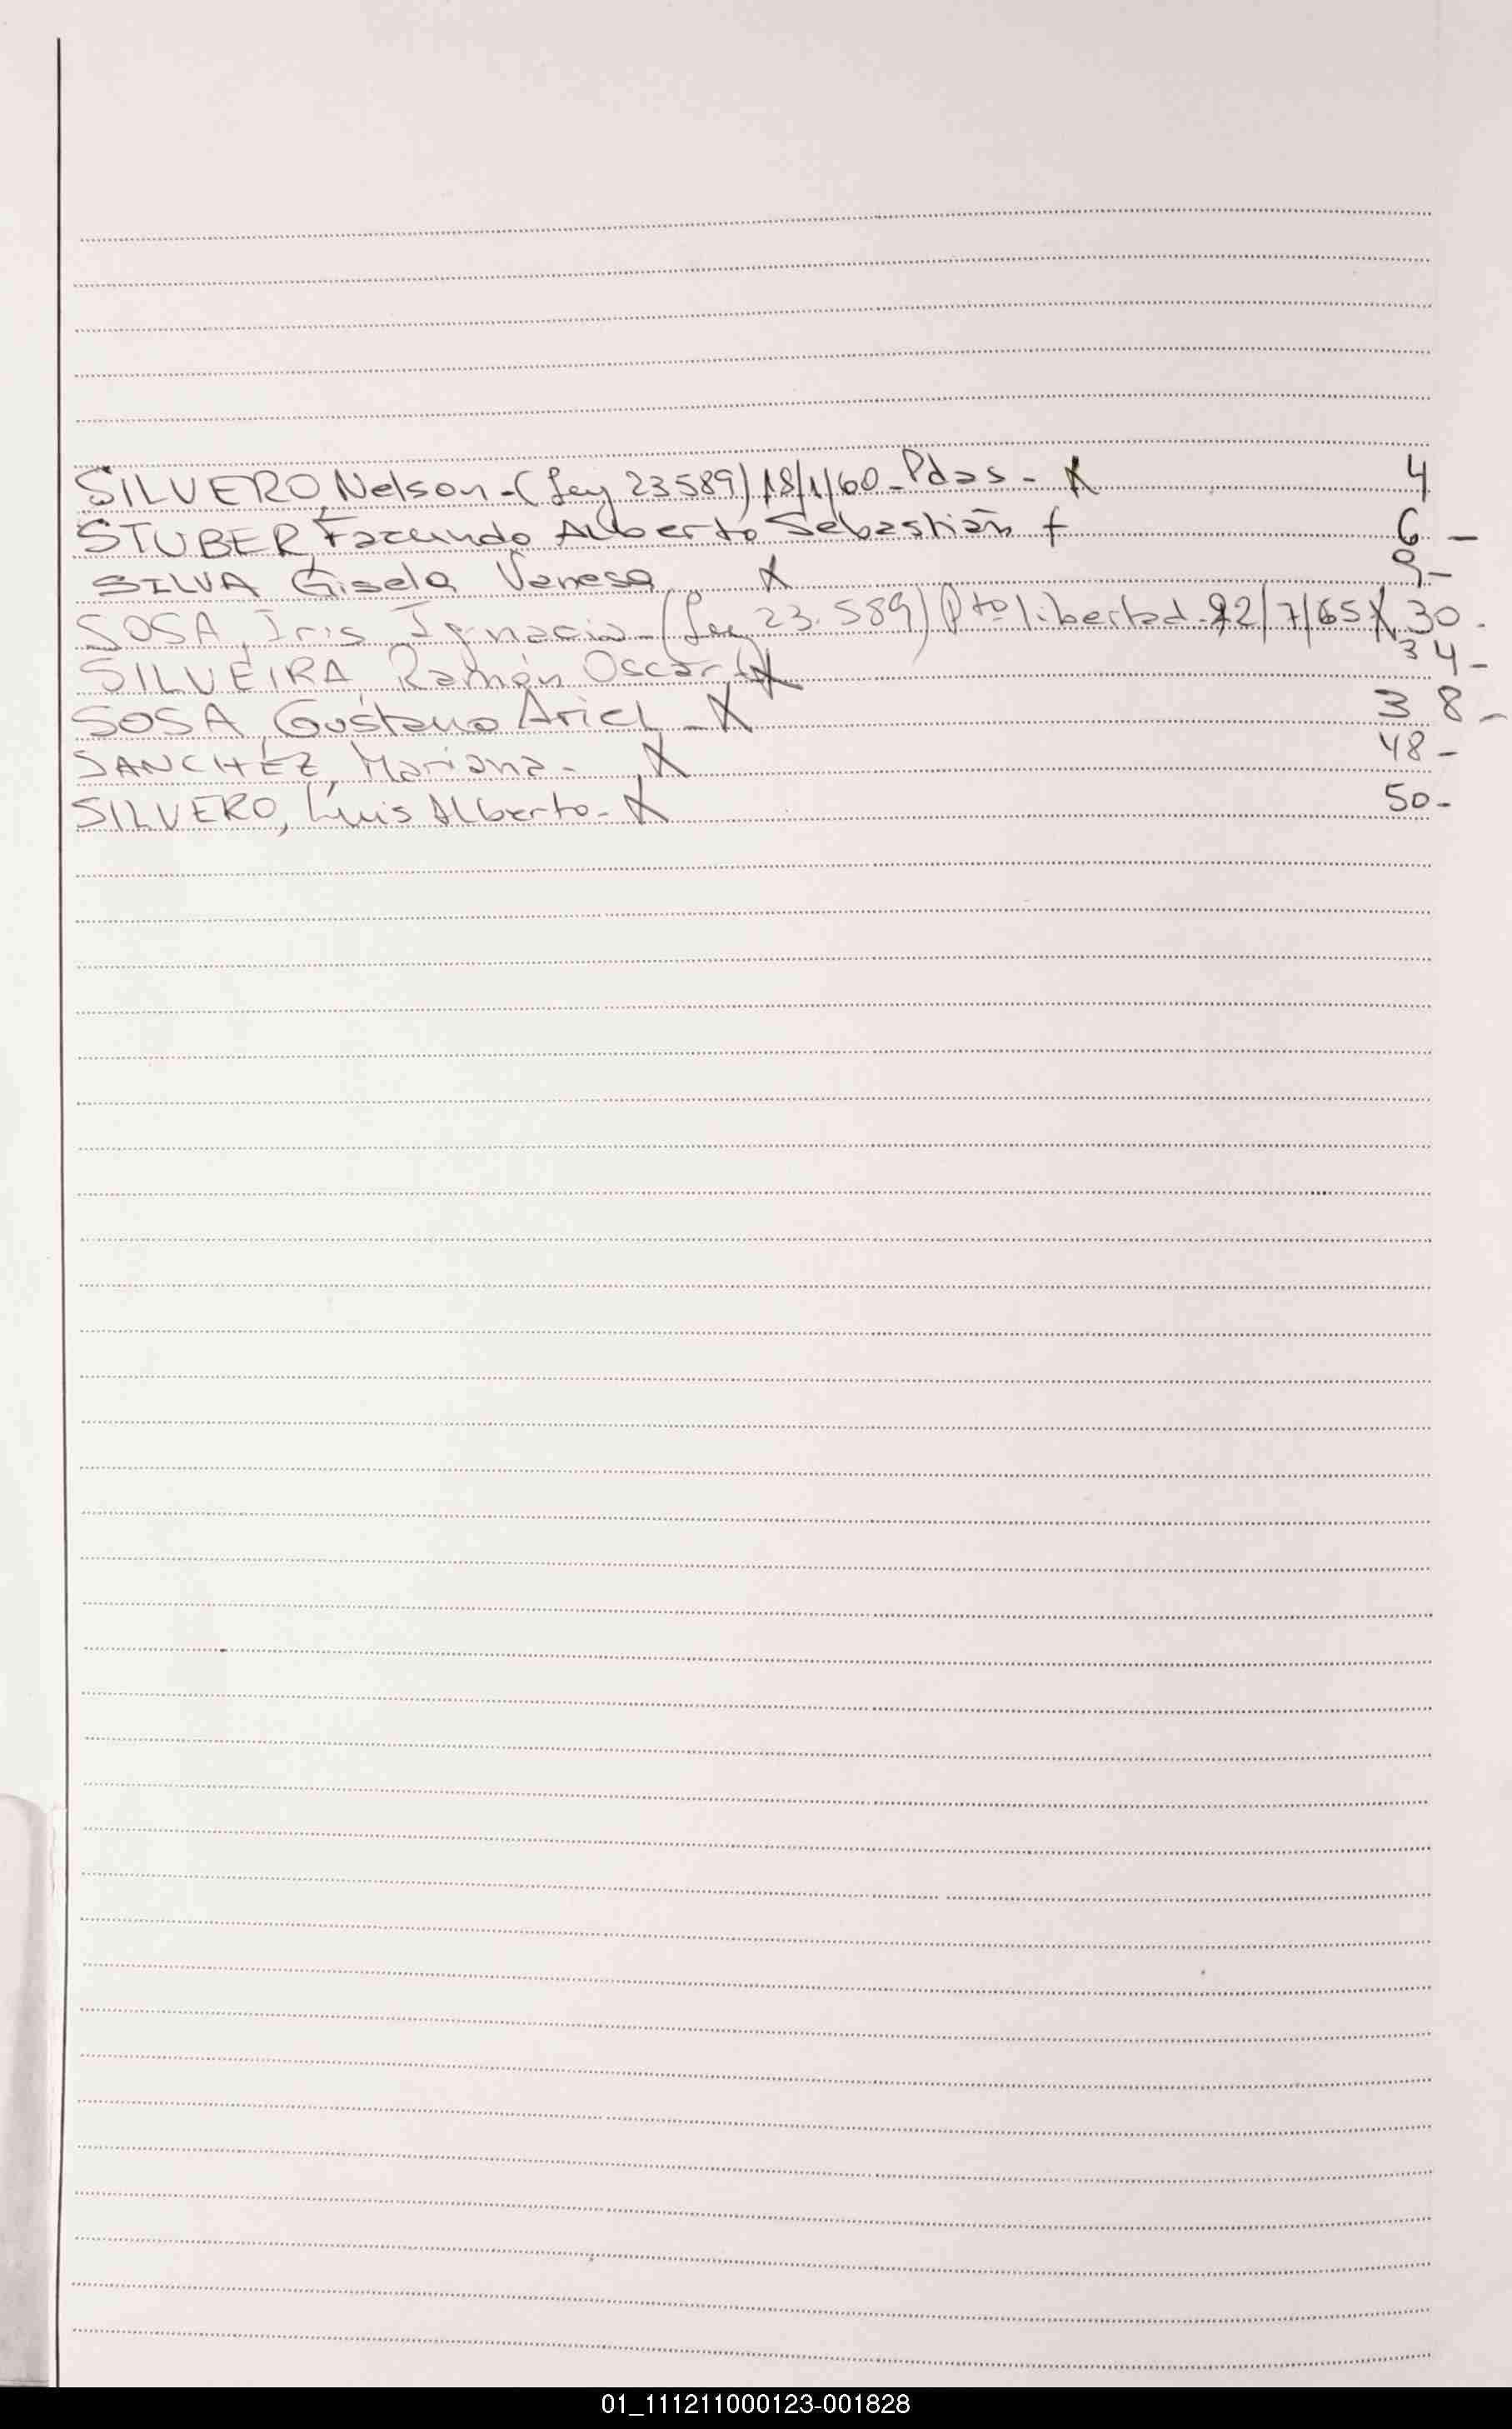 SILVERO, Nelson - (Ley 23589) 18/1/60 - Pdas - X 4
STUBER, Facundo Alberto Sebastián X 6 -
SILVA Gisela Vanesa X 9 -
SOSA, Iris Ignacia - (Ley 23.589) Pto libertad - 22/7/65 X 30 -
SILVEIRA, Ramón Oscar X 34 -
SOSA, Gustavo Ariel - X 38 -
SANCHEZ, Mariana - X 48 -
SILVERO, Luis Alberto - X 50 -
01_111211000123-001828